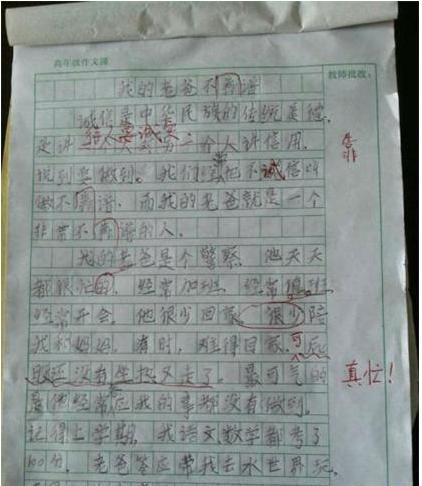 高年级作文课
教师批改：
我的老爸不靠谱
诚信是中华民族的传统美德，
给人要诚实
是讲 一个人讲信用，
说到要做到。我们常把不诚信叫
做不靠谱，而我的老爸就是一个
非常不靠谱的人。
靠
我的老爸是个警察，他天天
都很忙的，经常加班，经常值班
经常开会。他很少回家，很少陪
我和妈妈。有时，难得回家，可屁
股还没有坐热又走了。最可气的
真忙！
是他经常应我的事都没有做到。
记得上学期，我语文数学都考了
100分，老爸答应带我去水世界玩，